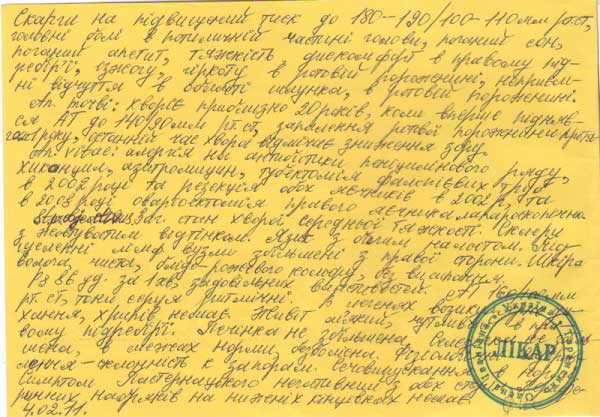 Скарги на підвищений тиск до 180-190/100-110 мм рт.ст,
головні болі в потиличній частині голови, поганий сон,
поганий апетит, тяжкість дискомфорт в правому під-
ребір'ї, ізжогу, гіркоту в ротовій порожнині, неприєм-
ні відчуття в області шлунка, в ротовій порожнині.
хворіє приблизно 20 років, коли вперше підняв-
ся АТ до 140/90 мм рт. ст, запалення ротової порожнини
1 року, останній час хвора відмічає зниження зору.
An. vitae: алергія на антибіотики пеніцилінового ряду,
азитроміцин, тубектомія фалопієвих труб
в 2002 році та резекція обох яєчників в 2002 р, та
в 2008 році оваріоектомія правого яєчника
заг. стан хворої середньої тяжкості. Склери
з жовтуватим відтінком. Язик з білим налостом. Під
лімф. вузли збільшені з правої сторони. Шкіра
волога, чиста, блідо-рожевого кольору, без висипання.
Ps 86 уд. за 1 хв, задовільних властивостей. АТ 160
рт. ст, тони серця ритмічні. В легенях
хання, хрипів немає. Живіт м'який, чутливий в пра-
вому підребір'ї. Печінка не збільшена.
в межах норми, безболісна.
схильність к запорам. Сечовипускання в нормі
Симптом Пастернацького негативний з обох
Набряків на нижніх кінцівках немає.
4.02.11.
ЛІКАР